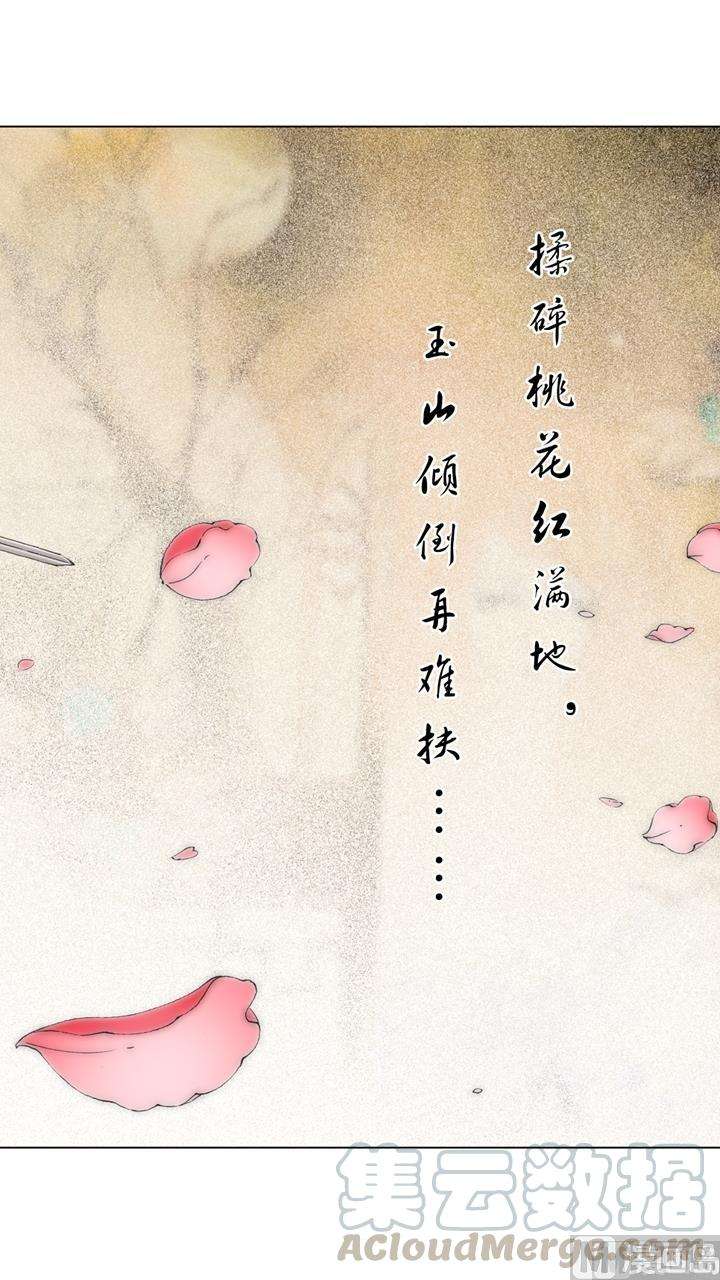 揉碎桃花红满地，
玉山倾倒再难扶……
集云数据
ACloudMerge.com
漫画岛